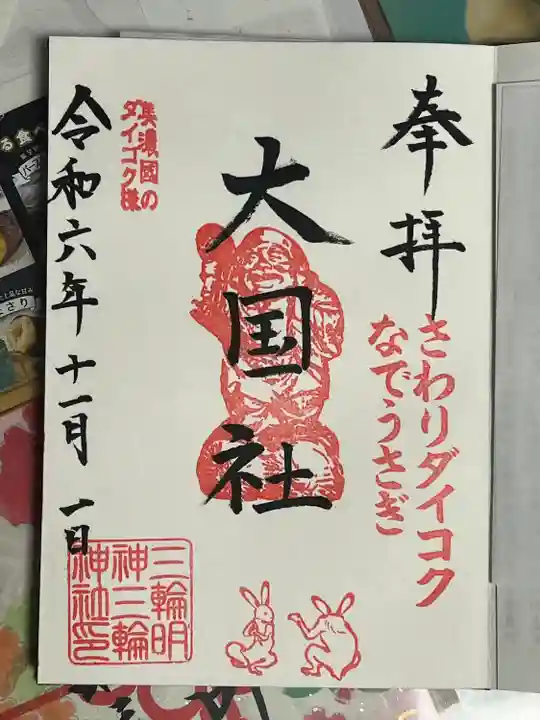 奉拝
さわりダイコク
なでうさぎ
大国社
美濃國の
ダイコク様
令和六年十一月一日
三輪明
神三輪
神社印
る食べ
さり